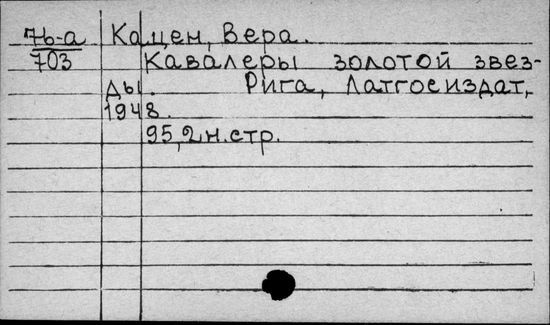 76-а Кацен, Вера.
703 Кавалеры золотой звез-
ды. Рига, Латгосиздат,
1948.
95,2н.стр.